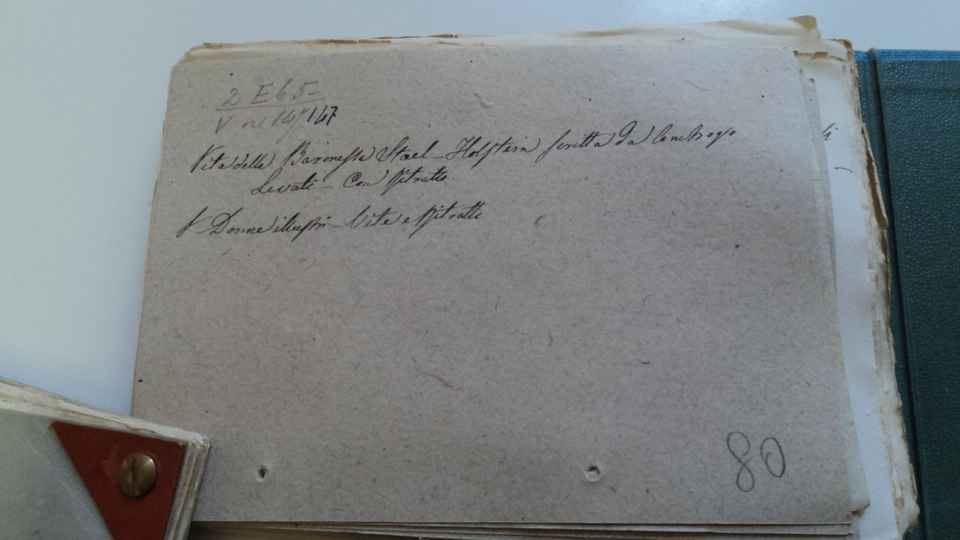 2 E 6 5
V n 14/147
Vita della Baronessa Stael-Holstein scritta da Ambrogio
Levati - Con Ritratto
f - Donne illustri - Vite e Ritratti
80